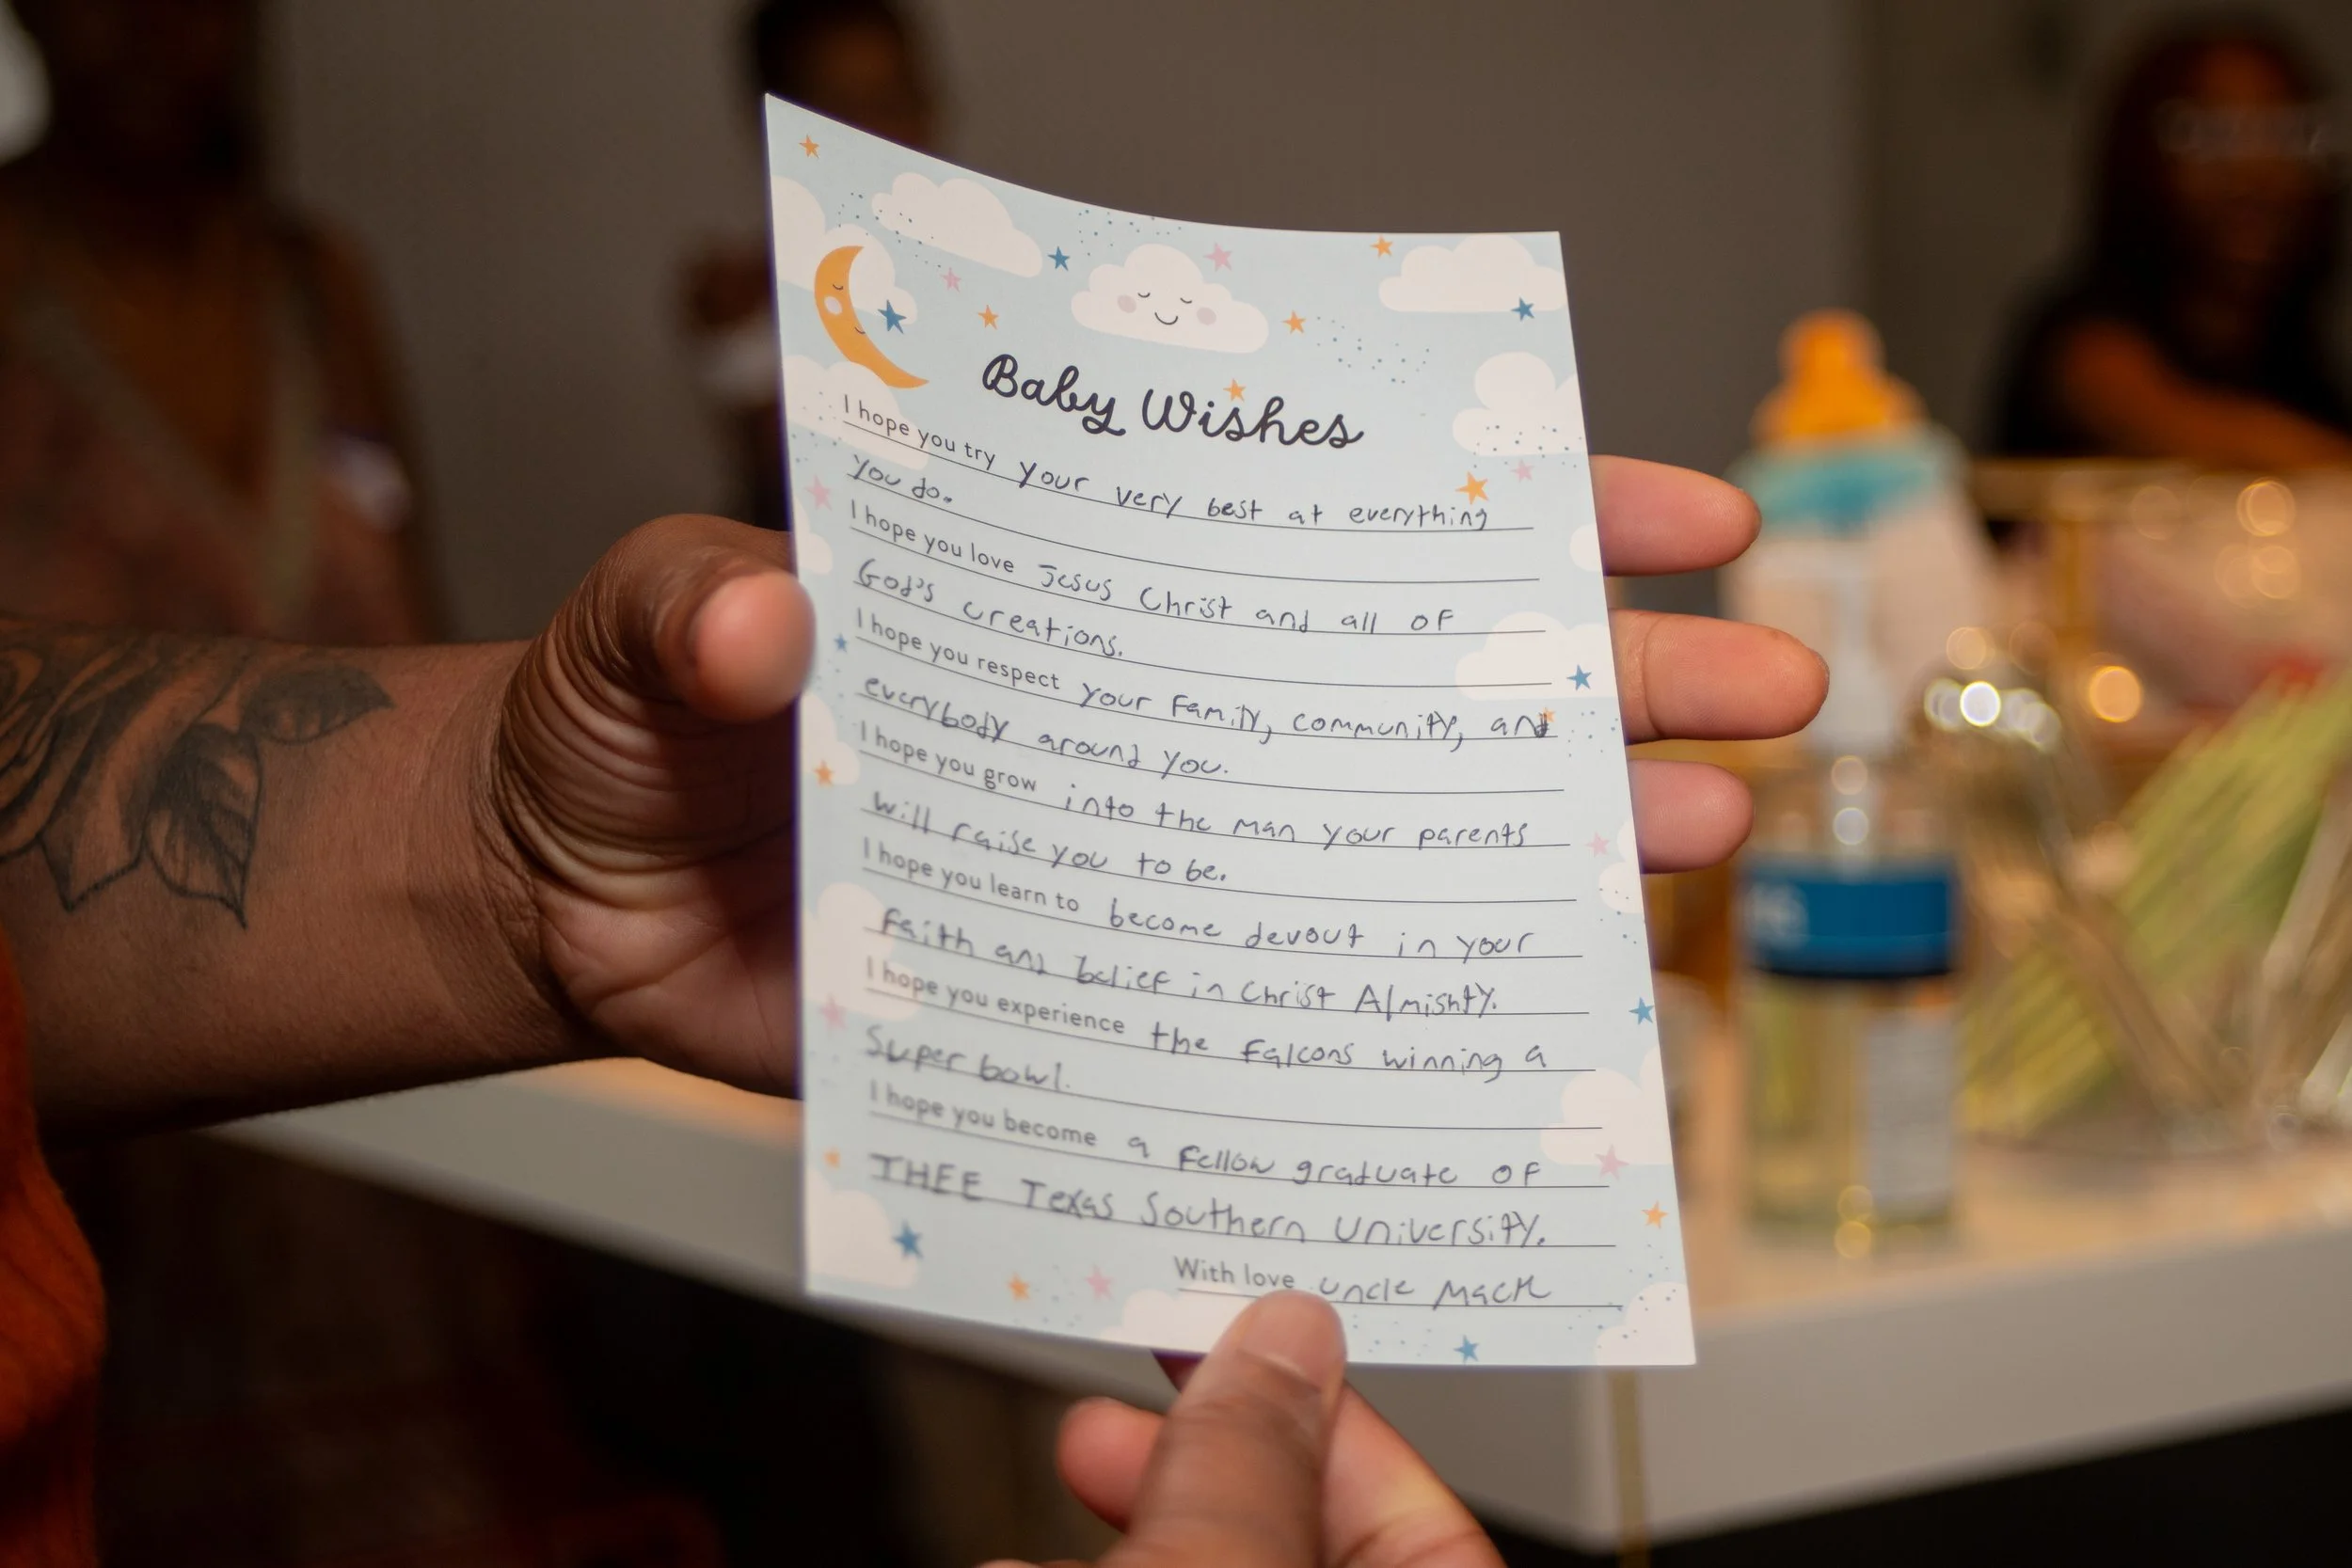 Baby Wishes
I hope you try your very best at everything
you do.
I hope you love Jesus Christ and all of
God's creations.
I hope you respect your family, community, and
everybody around you.
I hope you grow into the man your parents
will raise you to be.
I hope you learn to become devout in your
faith and belief in Christ Almighty.
I hope you experience the Falcons winning a
Super bowl.
I hope you become a fellow graduate of
THEE Texas Southern University.
With love uncle Mack